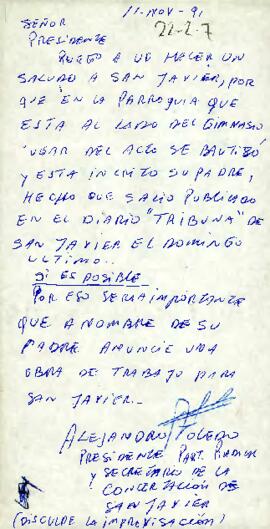 11-NOV-91
22-2-7
SEÑOR
PRESIDENTE
RUEGO A UD HACER UN
SALUDO A SAN JAVIER, POR
QUE EN LA PARROQUIA QUE
ESTA AL LADO DEL GIMNASIO
LUGAR DEL ACTO SE BAUTIZÓ
Y ESTA INCRITO SU PADRE,
HECHO QUE SALIO PUBLICADO
EN EL DIARIO "TRIBUNA" DE
SAN JAVIER EL DOMINGO
ULTIMO..
SI ES POSIBLE
POR ESO SERIA IMPORTANTE
QUE A NOMBRE DE SU
PADRE ANUNCIE UNA
OBRA DE TRABAJO PARA
SAN JAVIER_
ALEJANDRO TOLEDO
PRESIDENTE PART. RADICAL
Y SECRETARIO DE LA
CONCERTACION DE
SAN JAVIER
(DISCULPE LA IMPROVISACION)